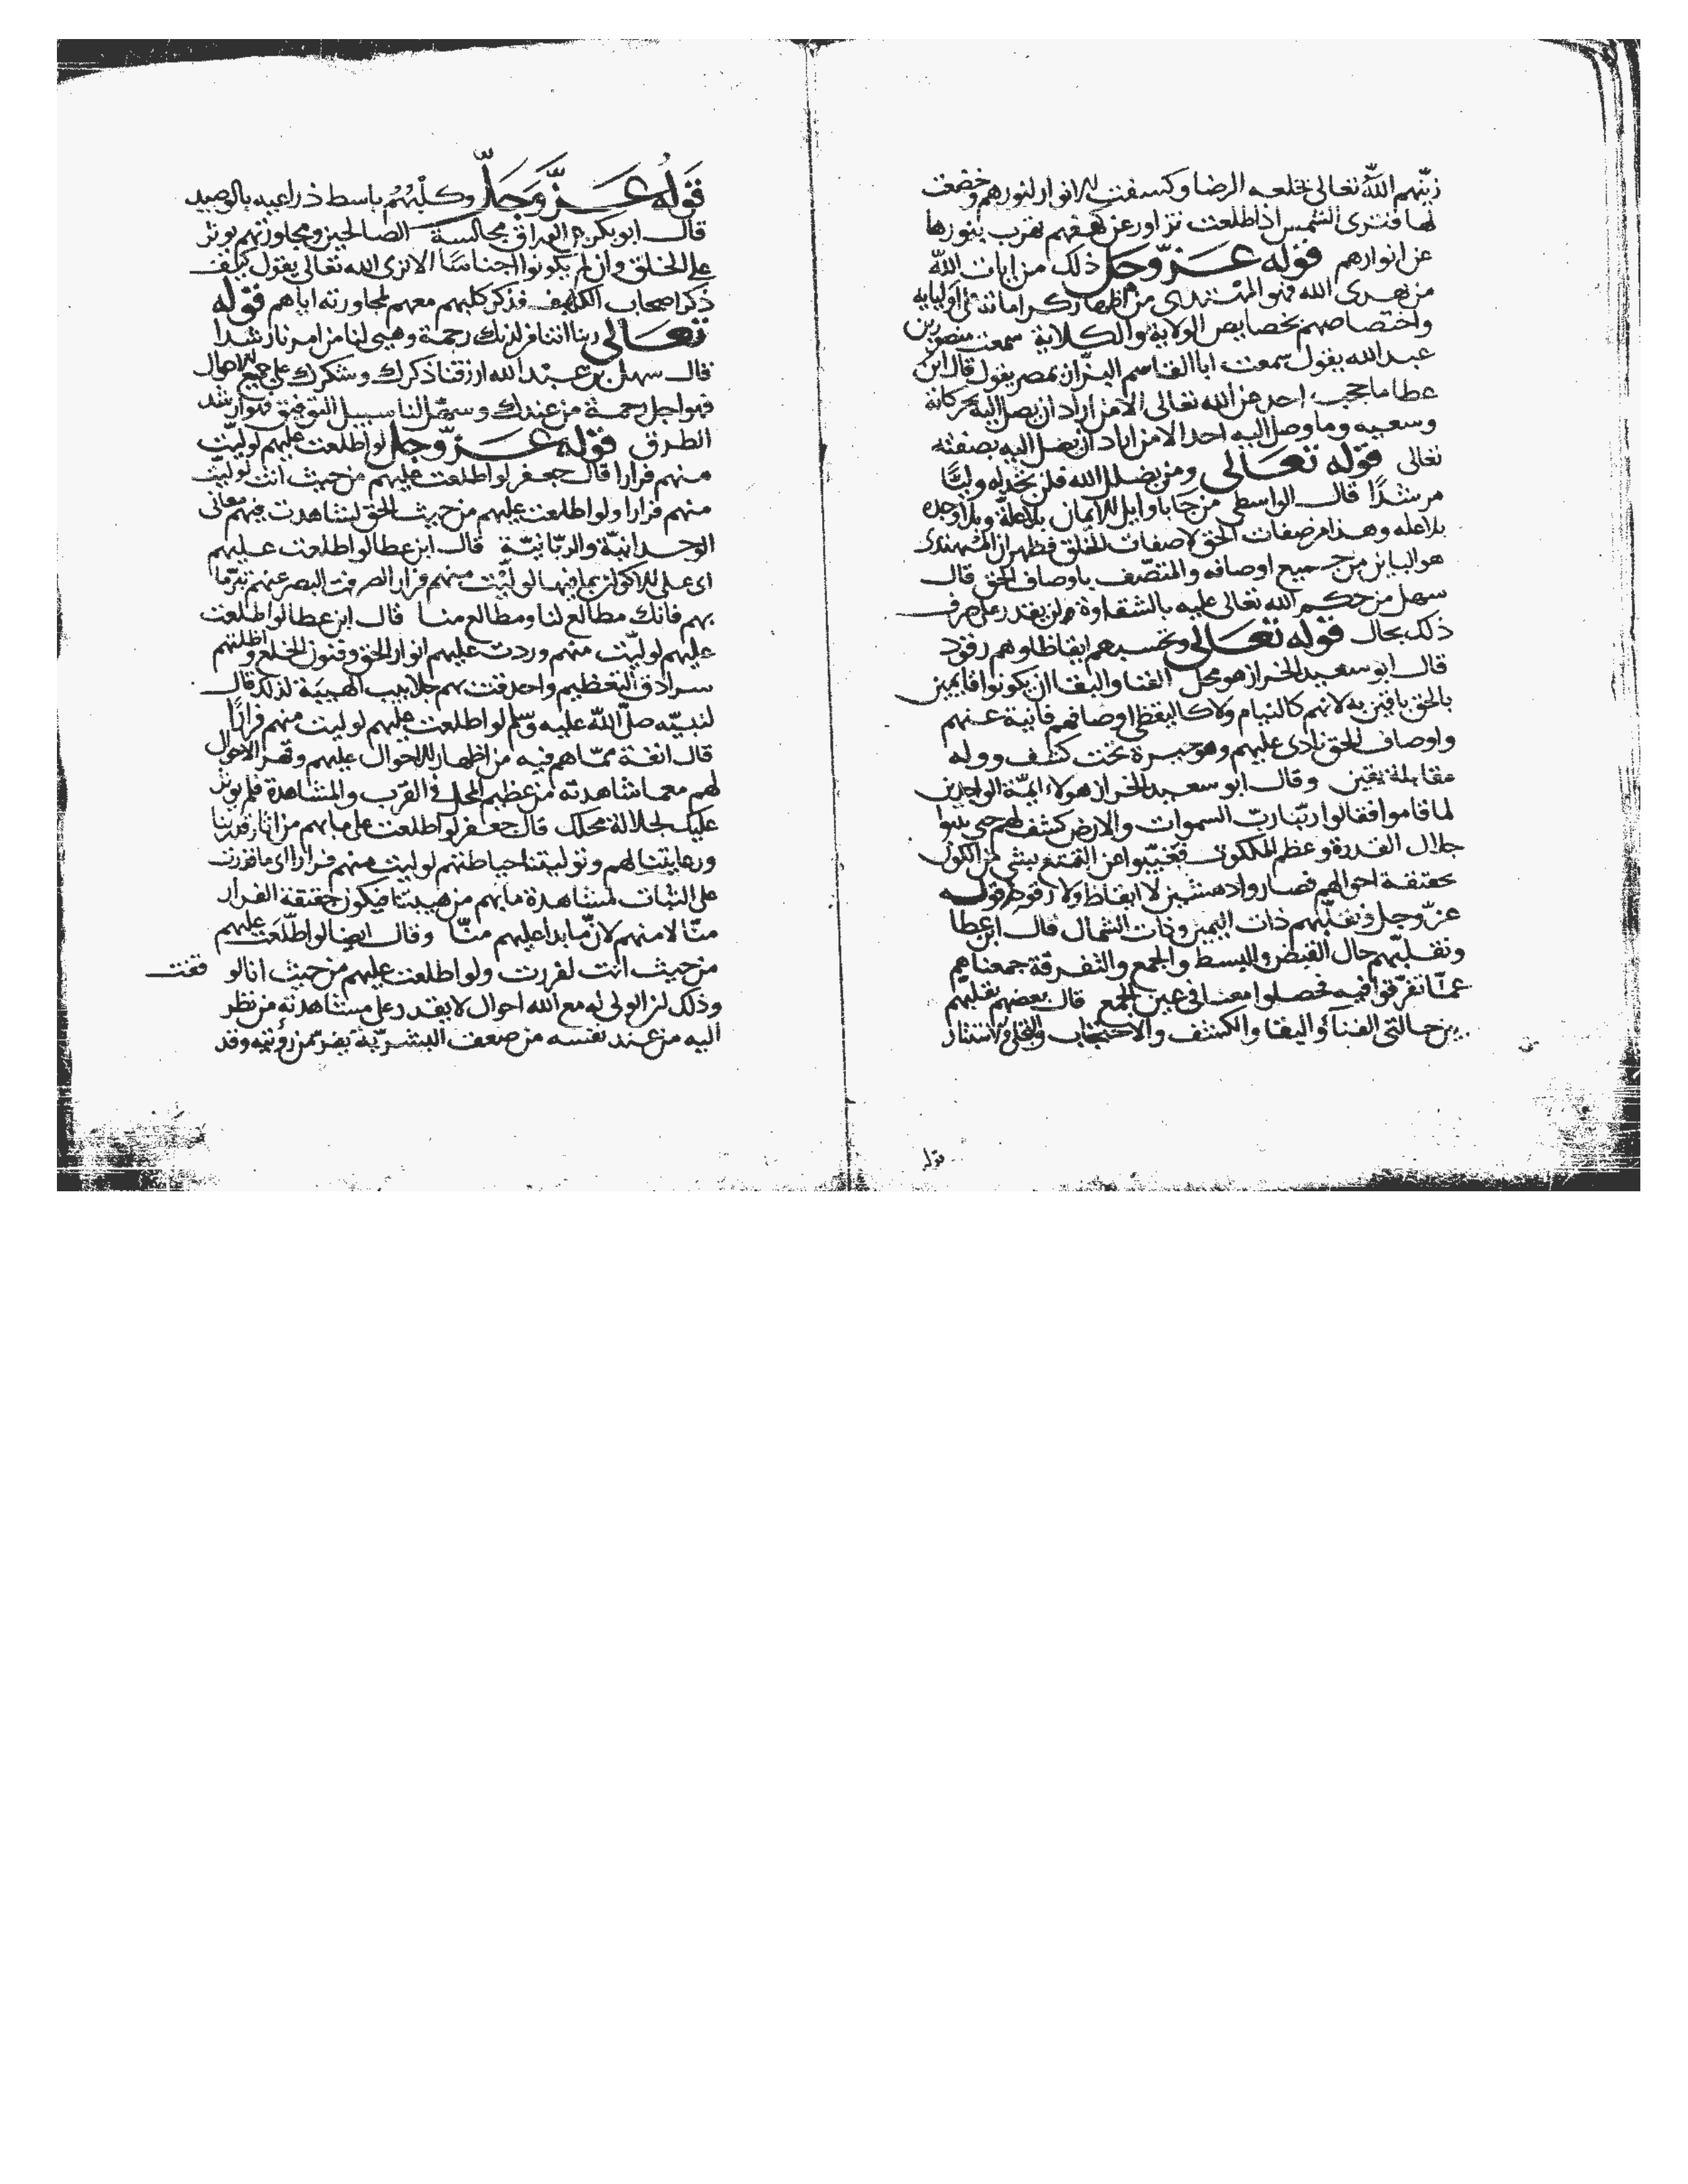 زينهم الله تعالى بخلعه الرضا وكسفت له انوار لنورهم وخضعت
لها فترى الشمس اذا طلعت تزاور عن كهفهم تقرب بنورها
عن انوارهم قوله عز وجل ذلك من ايات الله
من يهدى الله فهو المهتدى من اظهار كراماته على اوليايه
واختصاصهم بخصايص الولاية والكلاية سمعت منصور بن
عبد الله يقول سمعت ابا القاسم البزان بمصر يقول قال ابن
عطا ما حجب احد عن الله تعالى الا من اراد ان يصل اليه بحركاته
وسعيه وما وصل اليه احد الا من اراد ان يصل اليه بصفته
تعالى قوله تعالى ومن يضلل الله فلن تجد له وليًّا
مرشدًا قال الواسطى من حاباوايل للايمان بلا علة وبلا وجه
بلا عله وهذا من صفات الحق لا صفات للخلق فظهر ان المهتدى
هو الباين من جميع اوصافه والمتصّف باوصاف الحق قال
سهل من حكم الله تعالى عليه بالشقاوة لن يقدر على صرف
ذلك بحال قوله تعالى وتحسبهم ايقاظا وهم رقود
قال ابو سعيد الخراز هو محل الفنا والبقا ان يكونوا فانيين
بالحق باقين به لا نهم كالنيام ولا كاليقظى اوصافهم فانية عنهم
واوصاف الحق بادى عليهم وهو حيرة تحت كشف ووله
مقابلة يقين وقال ابو سعيد الخراز هولاء ايمّة الواجدين
لما قاموا فقالوا ربّنا ربّ السموات والارض كشف لهم حتى
جلال القدرة وعظم الملكوت فغيّبوا عن التمتع بشى من الكون
بحقيقة احوالهم فصاروا دهشين لا ايقاظ ولا رقود قوله
عزّ وجل ونقلبّهم ذات اليمين وذات الشمال قال ابن عطا
ونقلبّهم حال القبض والبسط والجمع والتفرقة جمعناهم
عمّا تفرّقوا فيه فحصلوا معنا فى عين الجمع قال بعضهم نقلبهم
بين حالتى الفنآء والبقا والكشف والاحتجاب والتجلى والاستتار
قوله
قوله عزّ وجلّ وكلبهم باسط ذراعيه بالوصيد
قال ابو بكر الوراق مجالسة الصالحين ومجاورتهم يوثر
على الخلق وان لم يكونوا اجناسًا الا ترى الله تعالى يقول كيف
ذكر اصحاب الكهف فذكر كلبهم معهم لمجاورته اياهم قوله
تعالى ربنا اتنا من لدنك رحمة وهيى لنا من امرنا رشدا
قال سهل بن عبد الله ارزقنا ذكرك وشكرك على جميع الاحوال
فهو اجل رحمة من عندك وسهّل لنا سبيل التوفيق فهو ارشد
الطرق قوله عزّ وجل لو اطلعت عليهم لوليّت
منهم فرارا قال جعفر لو اطلعت عليهم من حيث انت لوليّت
منهم فرارا ولو اطلعت عليهم من حيث الحق لشاهدت فيهم معانى
الوحدانيّة والربّانيّة قال ابن عطا لو اطلعت عليهم
اى على الاكوان بما فيها لوليّت منهم فرارا لصرفت البصر عنهم تبرّما
بهم فانك مطالع لنا ومطالع منا قال ابن عطا لو اطلعت
عليهم لوليّت منهم وردت عليهم انوار الحق وفنون الخلع واظلتهم
سرادق التعظيم واحدقت بهم جلابيب الهيبَة لذلك قال
لنبيّه صلّى الله عليه وسلم لو اطلعت عليهم لوليت منهم فرارًا
قال انفة ممّا هم فيه من اظهار للاحوال عليهم وقهر الاحوال
لهم معما شاهدته من عظيم المحل فى القرب والمشاهدة فلم يوثر
عليك لجلالة محلك قال جعفر لو اطلعت على ما بهم من اثار قدرتنا
ورعايتنا لهم وتوليتنا حياطتهم لوليت منهم فرارا اى ما قررت
على الثبات لمشاهدة ما بهم من هيبتنا فيكون حقيقة الفرار
منّا لا منهم لانّ ما بدا عليهم منّا وقال ايضا لو اطلّعت عليهم
من حيث انت لفررت ولو اطلعت عليهم من حيث انا لو قفت
وذلك لن الولى له مع الله احوال لا يقدر على مشاهدته من نظر
اليه من عند نفسه من ضعف البشريّة يفرّ من رؤيته وقد